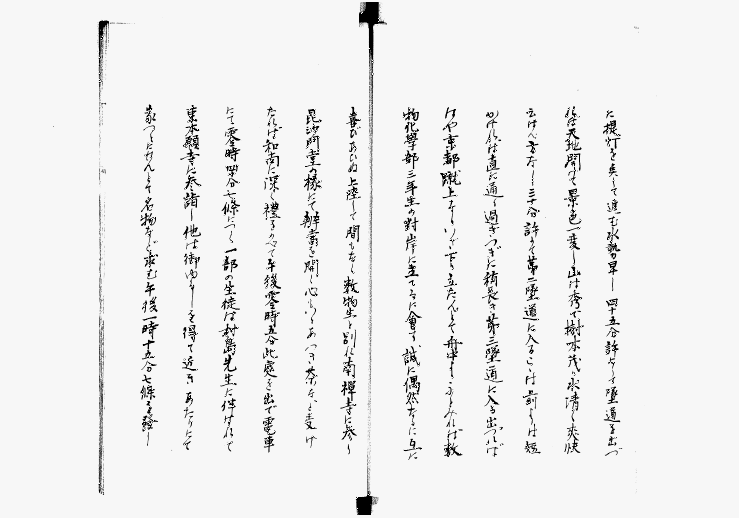 た提灯を点して進む水勢早し四十五分許にして墜道を出づ
れば天地開けて景色一変し山は秀で樹木茂り水清く爽快
云はん方なし三十分許にて第二墜道に入るこは前よりは短
ければ直に通り過ぎつぎに稍長き第三墜道に入る出づれば
はや京都蹴上なりいざ下り立たんとて舟中を見れば数
物化學部三年生の對岸に立てるに會す、誠に偶然なるに互に
喜びあひぬ上陸して間もなく数物生と別れ南禅寺に参り
毘沙門堂の椽にて辨當を開く心もちよくあつき茶など受け
たれば和尚に深く禮をのべて午後零時五分此處を出で電車
にて零時四十分七條につく一部の生徒は村島先生に伴はれて
東本願寺に参詣し他は御ゆるしを得て近きあたりにて
家つとにせんとて名物など求む午後一時十五分七條を發し